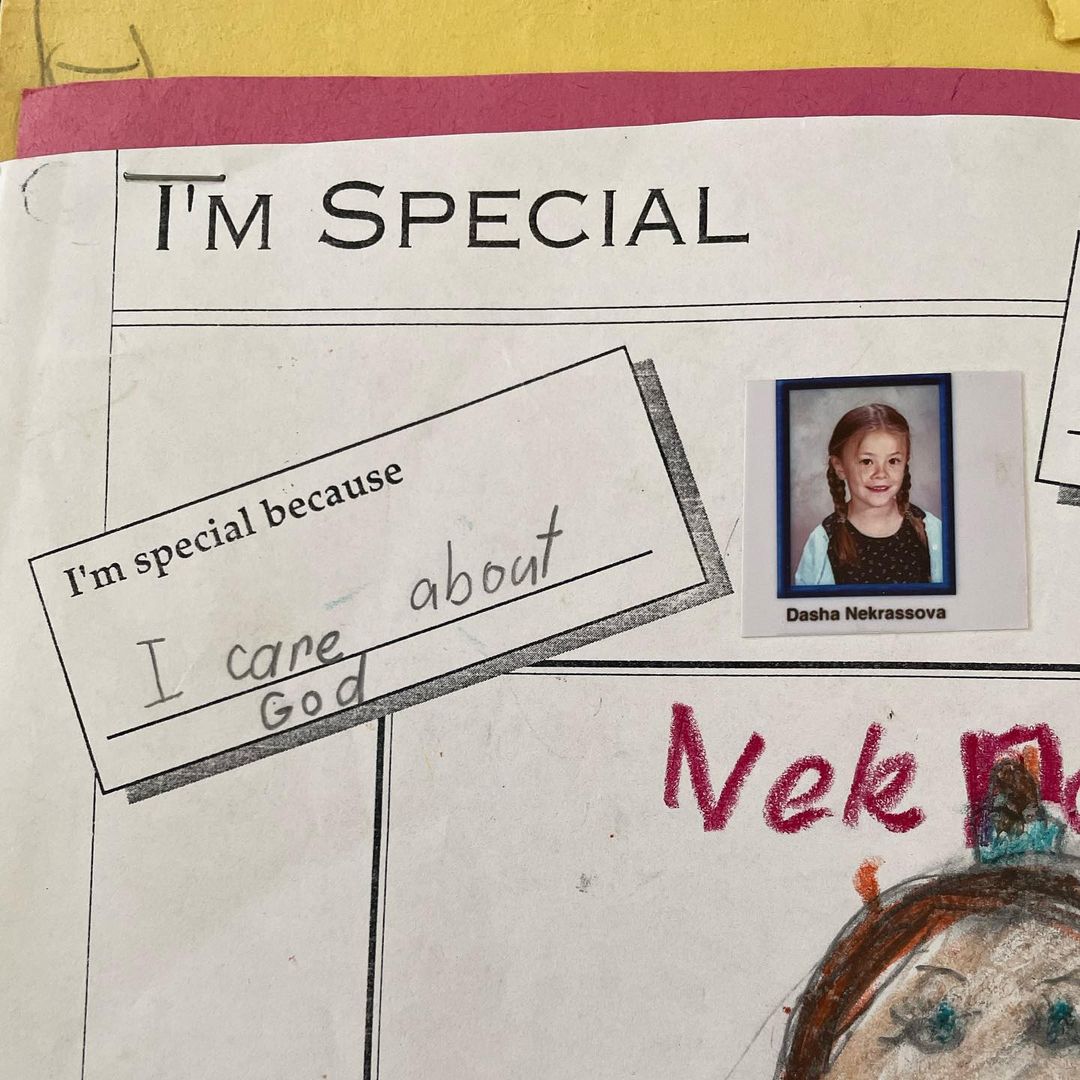 I'M SPECIAL
I'm special because
I care about
God
Dasha Nekrassova
Nek